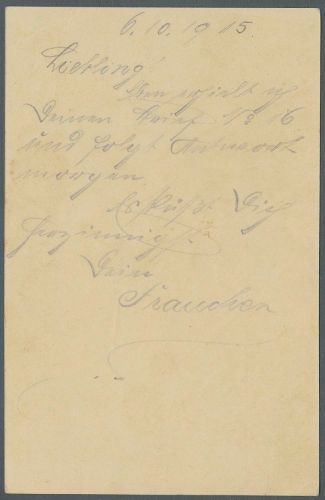 6.10.1915.
Liebling!
Eben erhielt ich
Deinen Brief No 16
und folgt Antwort
morgen.
Es küßt Dich
herzinnigst
Dein
Frauchen